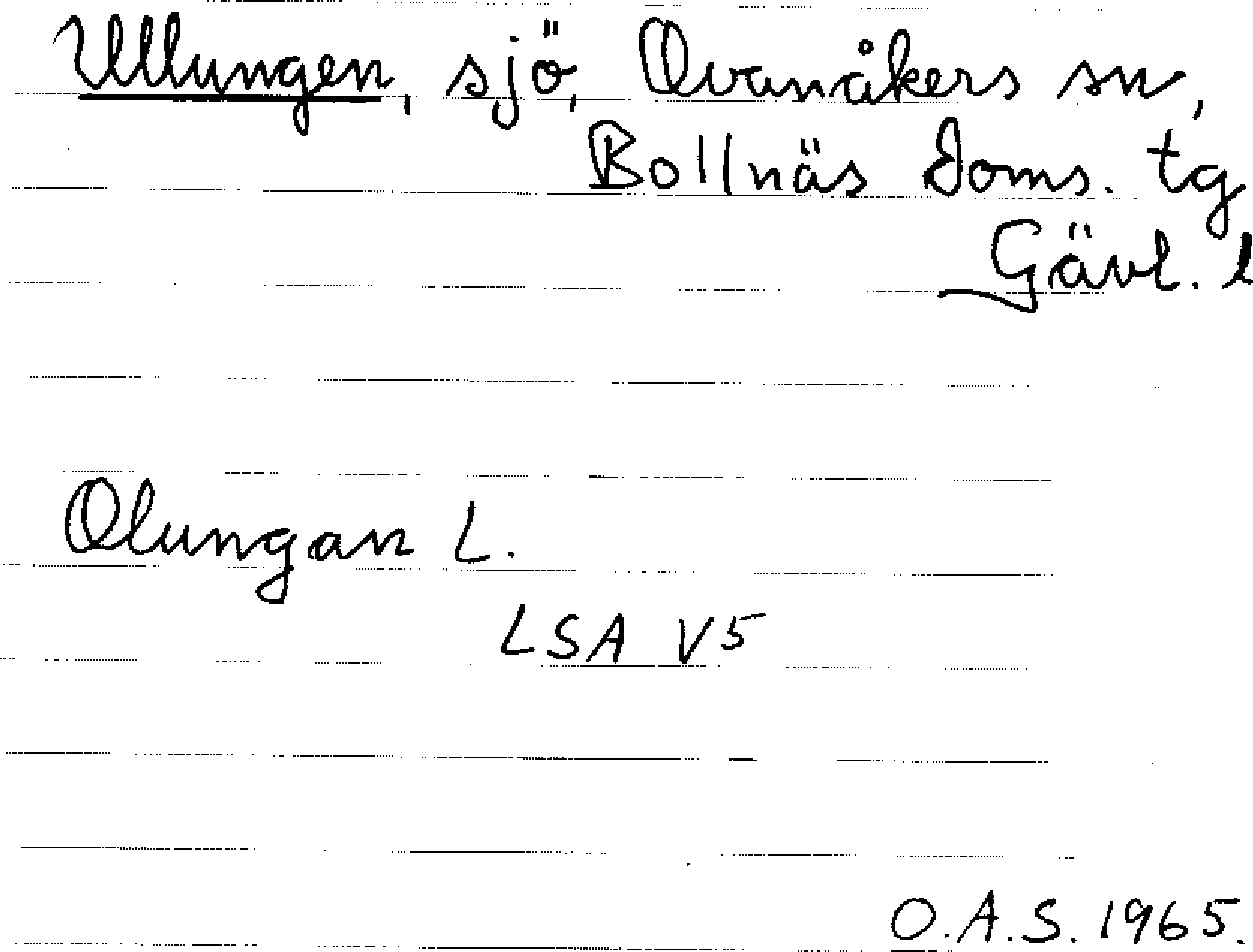 Ullungen, sjö, Ovanåkers sn,
Bollnäs doms. tg
Gävl. l
Olungan L.
LSA V5
O.A.S. 1965.